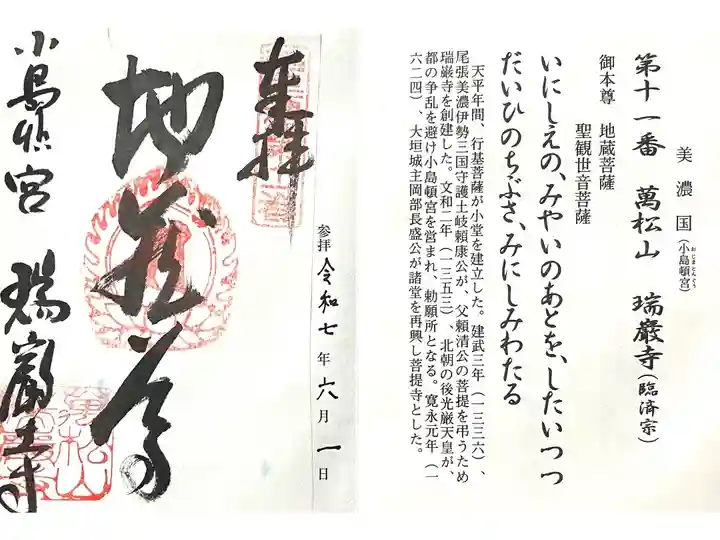 美濃国(小島頓宮)
おじまとんぐう
第十一番 萬松山 瑞巖寺(臨済宗)
御本尊 地蔵菩薩
聖観世音菩薩
いにしえの、みやいのあとを、したいつつ
だいひのちぶさ、みにしみわたる
天平年間、行基菩薩が小堂を建立した。建武三年(一三三六)、
尾張美濃伊勢三国守護土岐頼康公が、父頼清公の菩提を弔うため
瑞巌寺を創建した。文和二年(一三五三)、北朝の後光厳天皇が、
都の争乱を避け小島頓宮を営まれ、勅願所となる。寛永元年(一
六二四)、大垣城主岡部長盛公が諸堂を再興し菩提寺とした。
参拝 令和七年六月一日
奉拝
地蔵尊
小島頓宮 瑞巖寺